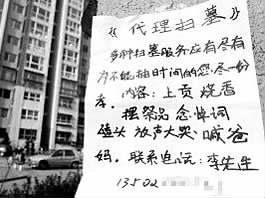 《代理扫墓》
多种扫墓服务应有尽有
为不能抽时间的您尽一份
孝。内容：上贡 烧香
摆祭品 念悼词
磕头 放声大哭、喊爸
妈。联系电话：李先生
13502